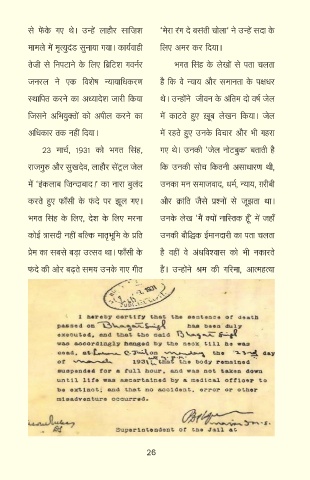 से फेंके गए थे। उन्हें लाहौर साजिश
मामले में मृत्युदंड सुनाया गया। कार्यवाही
तेजी से निपटाने के लिए ब्रिटिश गवर्नर
जनरल ने एक विशेष न्यायाधिकरण
स्थापित करने का अध्यादेश जारी किया
जिसने अभियुक्तों को अपील करने का
अधिकार तक नहीं दिया।
23 मार्च, 1931 को भगत सिंह,
राजगुरु और सुखदेव, लाहौर सेंट्रल जेल
में 'इंकलाब जिन्दाबाद!' का नारा बुलंद
करते हुए फाँसी के फंदे पर झूल गए।
भगत सिंह के लिए, देश के लिए मरना
कोई त्रासदी नहीं बल्कि मातृभूमि के प्रति
प्रेम का सबसे बड़ा उत्सव था। फाँसी के
फंदे की ओर बढ़ते समय उनके गाए गीत
'मेरा रंग दे बसंती चोला' ने उन्हें सदा के
लिए अमर कर दिया।
भगत सिंह के लेखों से पता चलता
है कि वे न्याय और समानता के पक्षधर
थे। उन्होंने जीवन के अंतिम दो वर्ष जेल
में काटते हुए खूब लेखन किया। जेल
में रहते हुए उनके विचार और भी गहरा
गए थे। उनकी 'जेल नोटबुक' बताती है
कि उनकी सोच कितनी असाधारण थी,
उनका मन समाजवाद, धर्म, न्याय, ग़रीबी
और क्रांति जैसे प्रश्नों से जूझता था।
उनके लेख 'मैं क्यों नास्तिक हूँ' में जहाँ
उनकी बौद्धिक ईमानदारी का पता चलता
है वहीं वे अंधविश्वास को भी नकारते
हैं। उन्होंने श्रम की गरिमा, आत्महत्या
I hereby certify that the sentence of death
passed on Bhagat Singh has been duly
executed, and that the said Bhagat Singh
was accordingly hanged by the neck till he was
dead, at Lahore C. Jail on Monday the 23rd day
of March 1931; that the body remained
suspended for a full hour, and was not taken down
until life was ascertained by a medical officer to
be extinct; and that no accident, error or other
misadventure occurred.
Superintendent of the Jail at
26